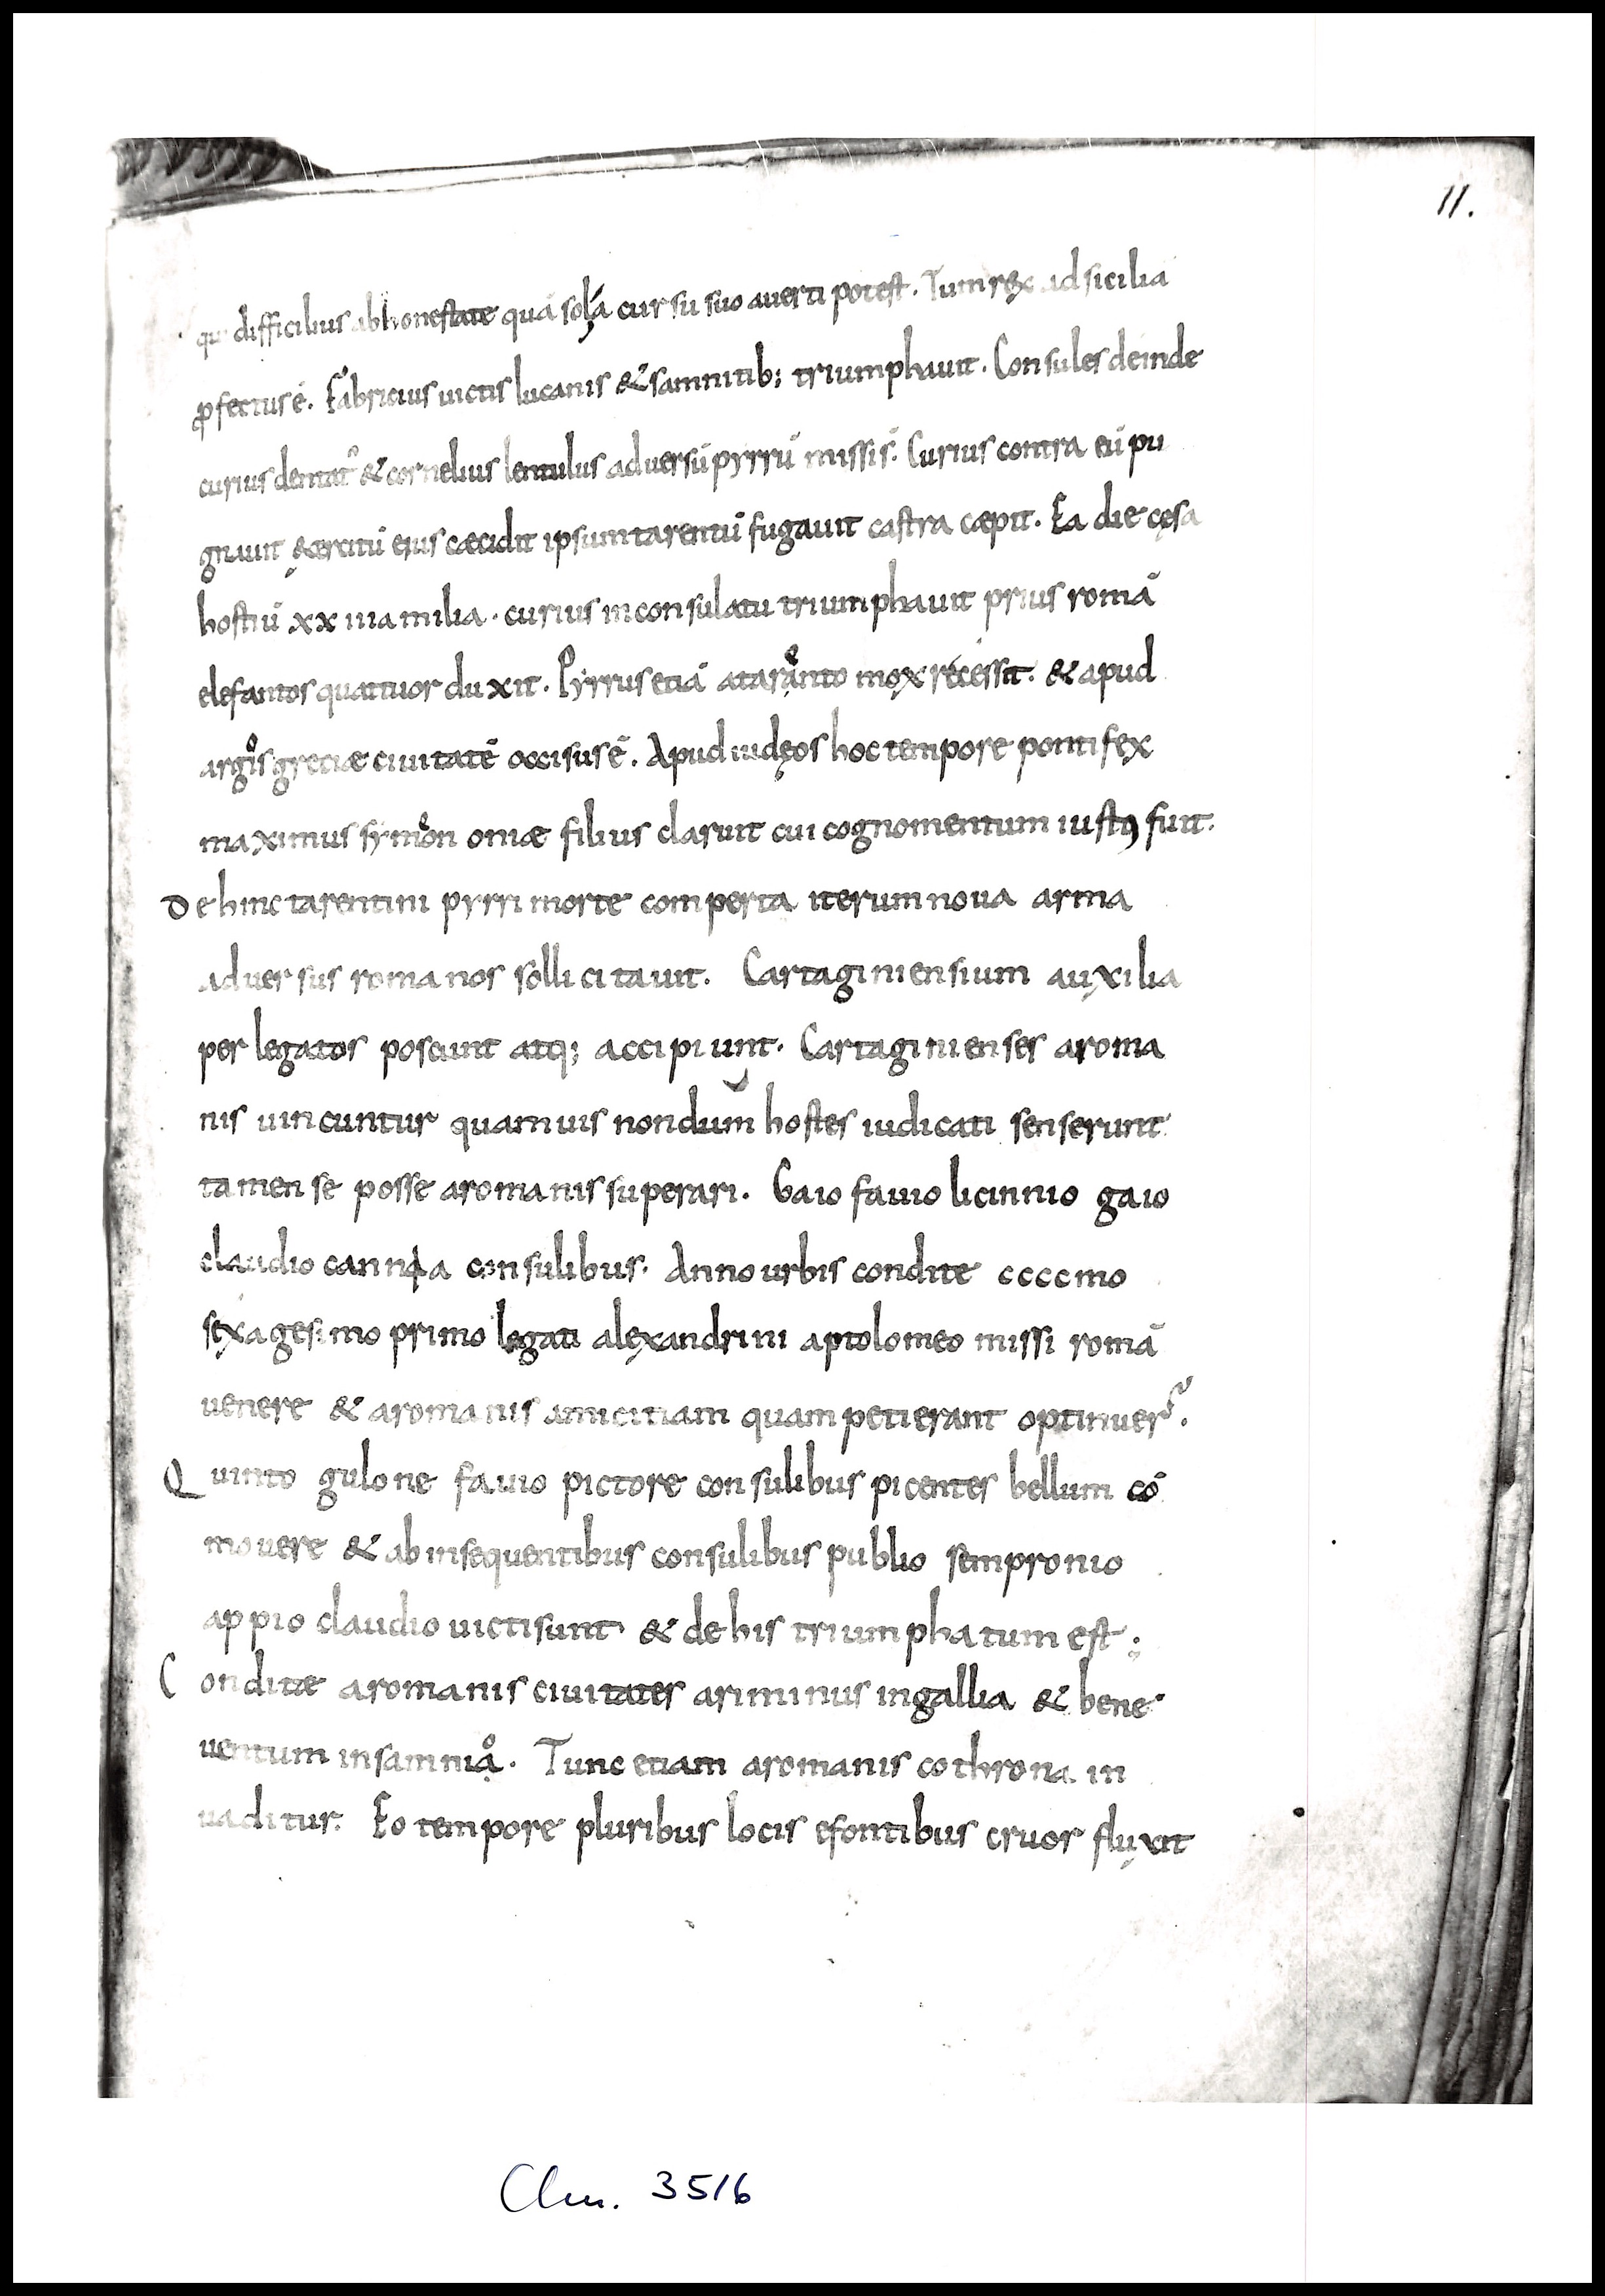 11.
qui difficilius ab honestate quā sol a cursu suo auerti potest. Tum rex ad sicilia
ꝓfectus ē. Fabricius uictis lucanis & samnitib; triumphauit. Consules deinde
curius dentat᾽ & cornelius lentulus aduersū pyrrū missis. Curius contra eū pu
gnauit exercitū eius cæcidit ipsum tarentū fugauit castra cæpit. Ea die cęsa
hostiū xx iiia milia. curius in consulatu triumphauit prius romā
elefantos quattuor duxit. Pyrrus etiā a tarento mox recessit. & apud
argos greciæ ciuitatē occisus ē. Apud iudęos hoc tempore pontifex
maximus symeon oniæ filius claruit cui cognomentum iustus fuit.
Dehinc tarentini pyrri morte comperta iterum noua arma
aduersus romanos sollicitauit. Cartaginiensium auxilia
per legatos poscunt atq; accipiunt. Cartaginienses a roma
nis uincuntur quamuis nondum hostes iudicati senserunt
tamen se posse a romanis superari. Gaio fauio licinnio gaio
claudio canina consulibus. Anno urbis condite ccccmo
sexagesimo primo legati alexandrini a ptolomeo missi romā
uenere & a romanis amicitiam quam petierant optinuer᾽.
Quinto gulone fauio pictore consulibus picentes bellum cō
mouere & ab insequentibus consulibus publio sempronio
appio claudio uicti sunt & de his triumphatum est.
Conditæ a romanis ciuitates ariminus in gallia & bene
uentum in samnio. Tunc etiam a romanis cothrona in
uaditur. Eo tempore pluribus locis e fontibus cruor fluxit
Clm. 3516